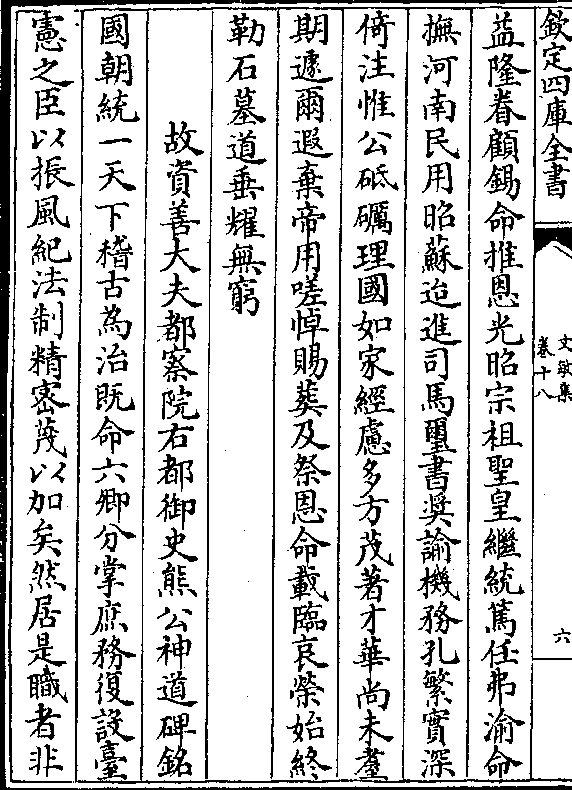 欽定四庫全書
文敏集
卷十八
六
益隆眷顧錫命推恩光昭宗祖聖皇繼統篤任弗渝命
撫河南民用昭蘇迨進司馬璽書奨諭機務孔繁實深
倚注惟公砥礪理國如家經慮多方茂著才華尚未耋
期遽爾遐棄帝用嗟悼賜葬及祭恩命載臨哀榮始終
勒石墓道垂耀無窮
故資善大夫都察院右都御史熊公神道碑銘
國朝統一天下稽古為治既命六卿分掌庶務復設臺
憲之臣以振風紀法制精密蔑以加矣然居是職者非